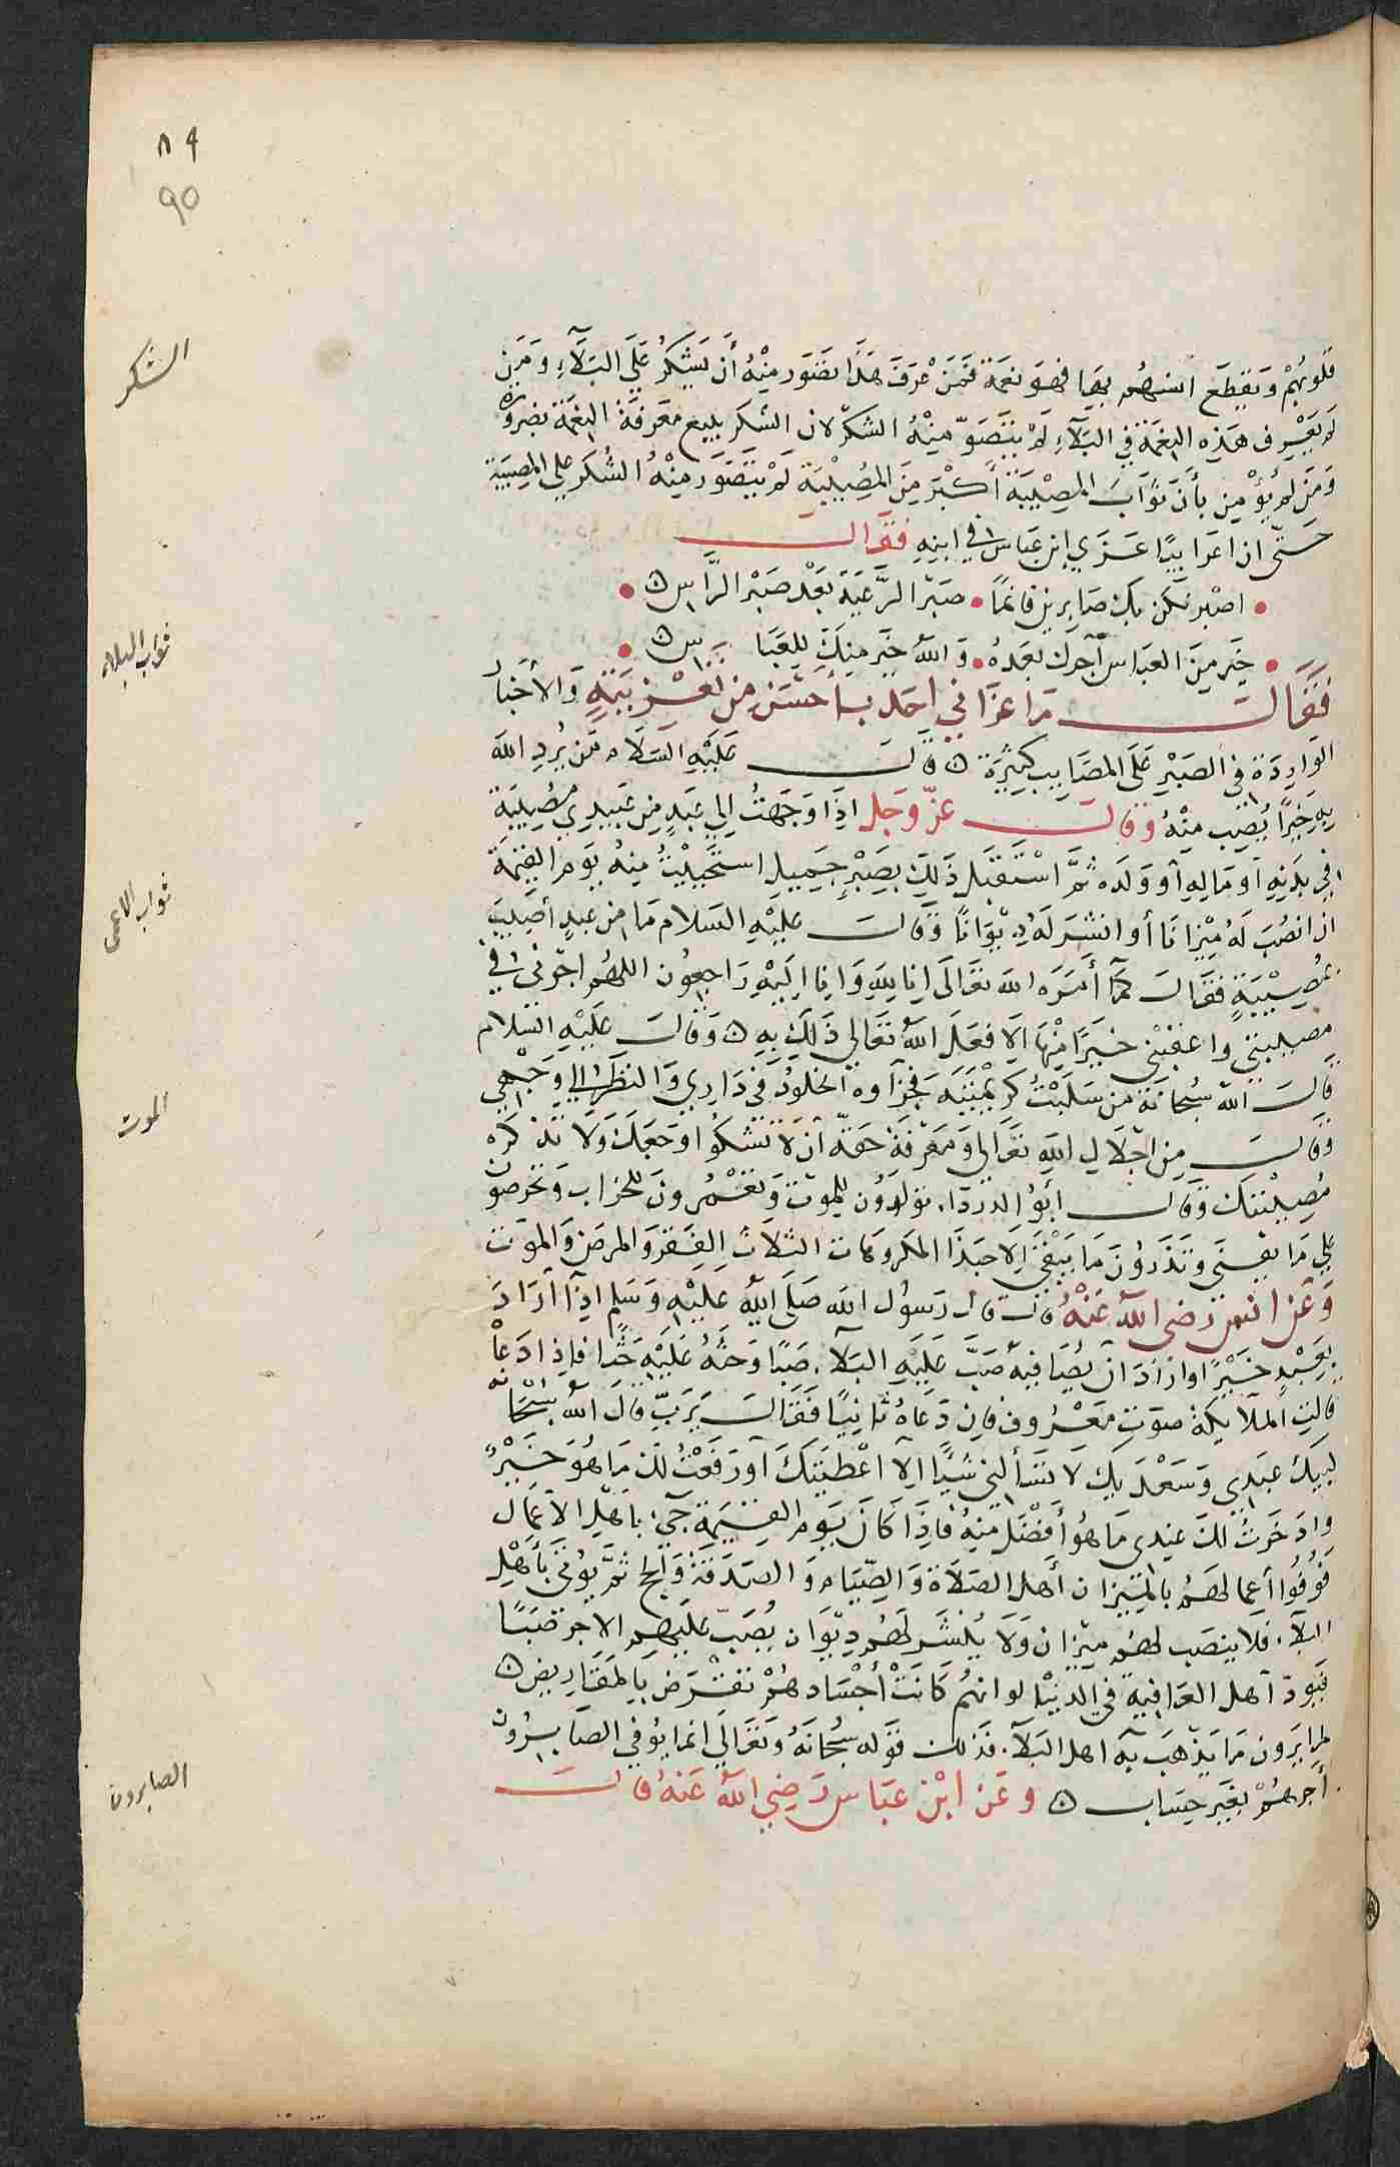 ٨٩
90
قلوبهم ويقطع انسهم بها فهو نعمة فمن عرف هذا تصور منه أن يشكر على البلآء ومن
لم يعرف هذه النعمة في البلآء لم يتصور منه الشكر لان الشكر يتبع معرفة النعمة بضرورة
ومن لم يؤمن بأن ثواب المصيبة أكبر من المصيبة لم يتصور منه الشكر على المصيبة
حتى ان اعرابيا عزى ابن عباس في ابيه فقال
اصبر نكن بك صابرين فانما • صبر الرعية بعد صبر الراس
خير من العباس آجرك بعده • والله خير منك للعباس
فقال ما عزاني احد بأحسن من تعزيته والأخبار
الواردة في الصبر على المصايب كثيرة قال عليه السلام من يرد الله
به خيرا يصب منه وقال عز وجل اذا وجهت الى عبد من عبيدي مصيبة
في بدنه أو ماله أو ولده ثم استقبل ذلك بصبر جميل استحييت منه يوم القيمة
ان انصب له ميزانا أو انشر له ديوانا وقال عليه السلام ما من عبد أصيب
بمصيبة فقال كما أمره الله تعالى انا لله وانا اليه راجعون اللهم اجرني في
مصيبتي واعقبني خيرا منها الا فعل الله تعالى ذلك به وقال عليه السلام
قال الله سبحانه من سلبت كريمتيه فجزآوه الخلود في داري والنظر الى وجهي
وقال من اجلال الله تعالى ومعرفة حقه أن لا تشكوا وجعك ولا تذكره
مصيبتك وقال ابو الدردا. تولدون للموت وتعمرون للخراب وتحرصون
على ما يفنى وتذرون ما يبقى الا حبذا المكروهات الثلاث الفقر والمرض والموت
وعن انس رضى الله عنه قال قال رسول الله صلى الله عليه وسلم اذا أراد
بعبد خيرا اواراد ان يصافيه صب عليه البلآ. صبا وحثه عليه حثا فاذا دعا
قالت الملآيكة صوت معروف فان دعاه ثانيا فقال يرب قال الله سبحانه
لبيك عبدي وسعديك لا تسألني شيئا الا اعطيتك أو رفعت لك ما هو خير
وادخرت لك عندي ما هو أفضل منه فاذا كان يوم القيمة جئ باهل الاعمال
فوفوا أعمالهم بالميزان أهل الصلاة والصيام والصدقة والحج ثم يؤتى بأهل
البلآ. فلا ينصب لهم ميزان ولا ينشر لهم ديوان يصب عليهم الاجر صبا
فيود أهل العافية في الدنيا لو انهم كانت أجساد هم تقرض بالمقاريض
لما يرون ما يذهب به اهل البلآ. فذلك قوله سبحانه وتعالى انما يوفي الصابرون
أجرهم بغير حساب وعن ابن عباس رضي الله عنه قال
الشكر
ثواب البلاء
ثواب الاعمى
الموت
الصابرون